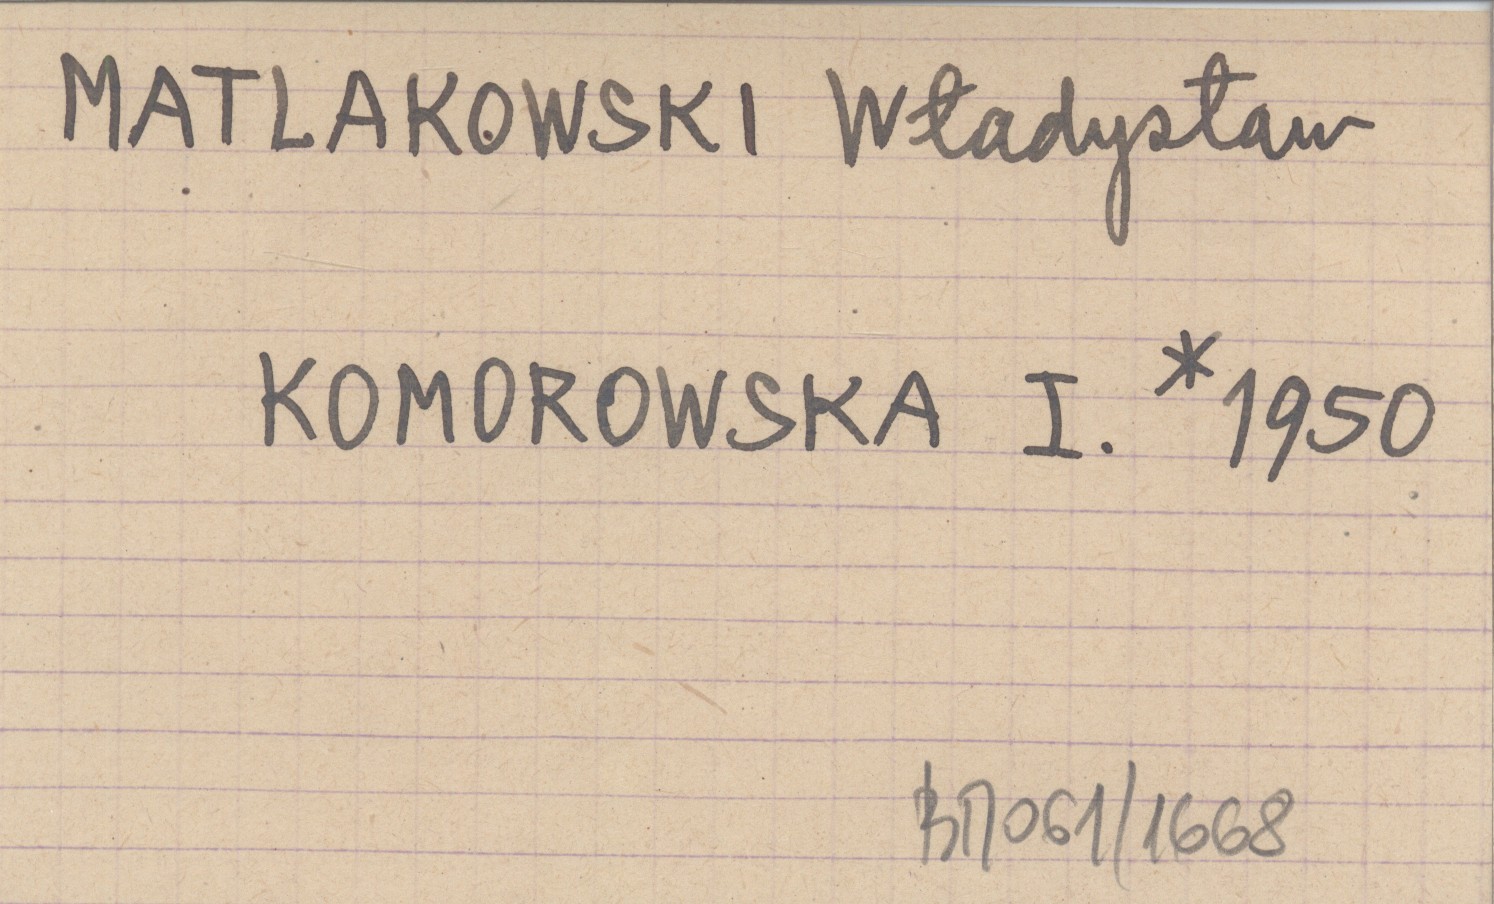 MATLAKOWSKI Władysław
KOMOROWSKA I. *1950
ВП061/1668